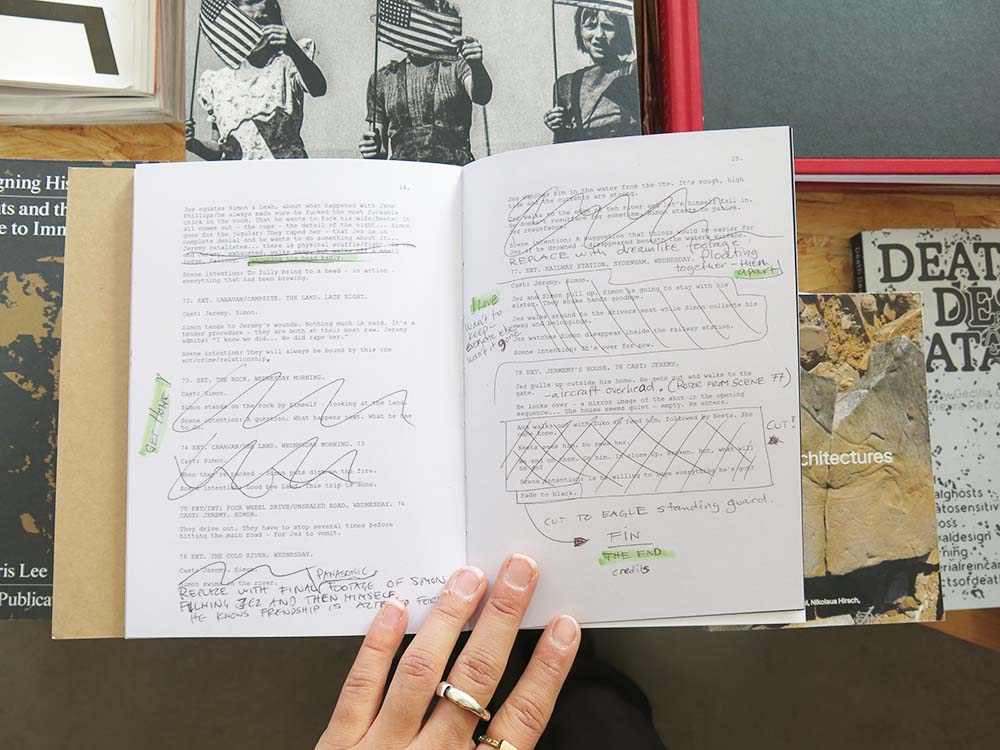 24.
Jez equates Simon & Leah, about what happened with Jane
Phillips/he always made sure he fucked the most fuckable
chick in the room. That he wants to fuck his wife(Neets) It
all comes out - the cops - the detail of the night... Simon
goes for the jugular: They raped her - that Jez is in
complete denial and he wants to do something about it...
Jeremy retaliates... there is physical scuffle/fight.
his head badly.
Scene intention: To fully bring to a head - in action -
everything that has been brewing.
72. EXT. CARAVAN/CAMPSITE. THE LAND. LATE NIGHT.
Cast: Jeremy. Simon.
Simon tends to Jeremy's wounds. Nothing much is said. It's a
tender procedure - they are both at their most raw. Jeremy
admits: "I know we did... We did rape her."
Scene intention: They will always be bound by this one
act/crime/relationship.
73. EXT. THE ROCK. WEDNESDAY MORNING.
Cast: Simon.
Simon stands on the rock by himself / looking at the land.
Scene intention: A question. What happens next. What he has
to do.
GET HOME
74 EXT. CARAVAN/THE LAND. WEDNESDAY MORNING. 73
Cast: Jeremy. Simon.
When they're packed - Simon puts dirt on the fire.
Scene intention: Good bye land. This trip is done.
75 EXT/INT: FOUR WHEEL DRIVE/UNSEALED ROAD. WEDNESDAY. 74
CAST: JEREMY. SIMON.
They drive out. They have to stop several times before
hitting the main road - for Jez to vomit.
76 EXT. THE COLD RIVER. WEDNESDAY.
Cast: Jeremy. Simon.
Simon swims in the river.
PANASONIC
REPLACE WITH FINAL FOOTAGE OF SIMON
FILMING JEZ AND THEN HIMSELF.
HE KNOWS FRENDSHIP IS
25.
Jez watches Sim in the water from the Ute. It's rough, high
tide and the currents are strong.
Jez walks to the edge of teh river and let's himself fall in.
He doesn't resurface for sometime. Simon starts to panick.
Jez resurfaces.
Scene intention: A suggestion that things would be easier for
Jez if he drowned - disappeared beneath the water's surface.
REPLACE with dreamlike footage. Floating
together - them
apart
77. EXT. RAILWAY STATION. SYDENHAM. WEDNESDAY.
Cast: Jeremy. Simon.
Jez and Simon pull up. Simon is going to stay with his
sister. They shake hands goodbye.
Jez walks around to the drivers seat while Simon collects his
swag and belongings.
Jez watches Simon disappear inside the railway station.
Scene intention: It's over for now.
I Love
want to
keep
everyone else
won't it go
78 EXT. JERMEMY'S HOUSE. 78 CAST: JEREMY.
Jez pulls up outside his home. He gets out and walks to the
gate. - aircraft overhead. (FROM SCENE 77)
He looks over - a mirror image of the shot in the opening
sequence... The house seems quiet - empty. He enters.
Ava walks out with Zuko to feed him, followed by Neets. She
Neets sees him. He sees her.
We end on them. On him. In close up. Broken. But, what will
he do?
Scene intention: Is he willing to lose everything he's got?
Fade to black.
CUT!
CUT TO EAGLE standing guard.
FIN
THE END
credits
gning His
ts and th
e to Imm
ris Lee
Publicat
chitectures
Nikolaus Hirsch,
DEAT
DE
ATA